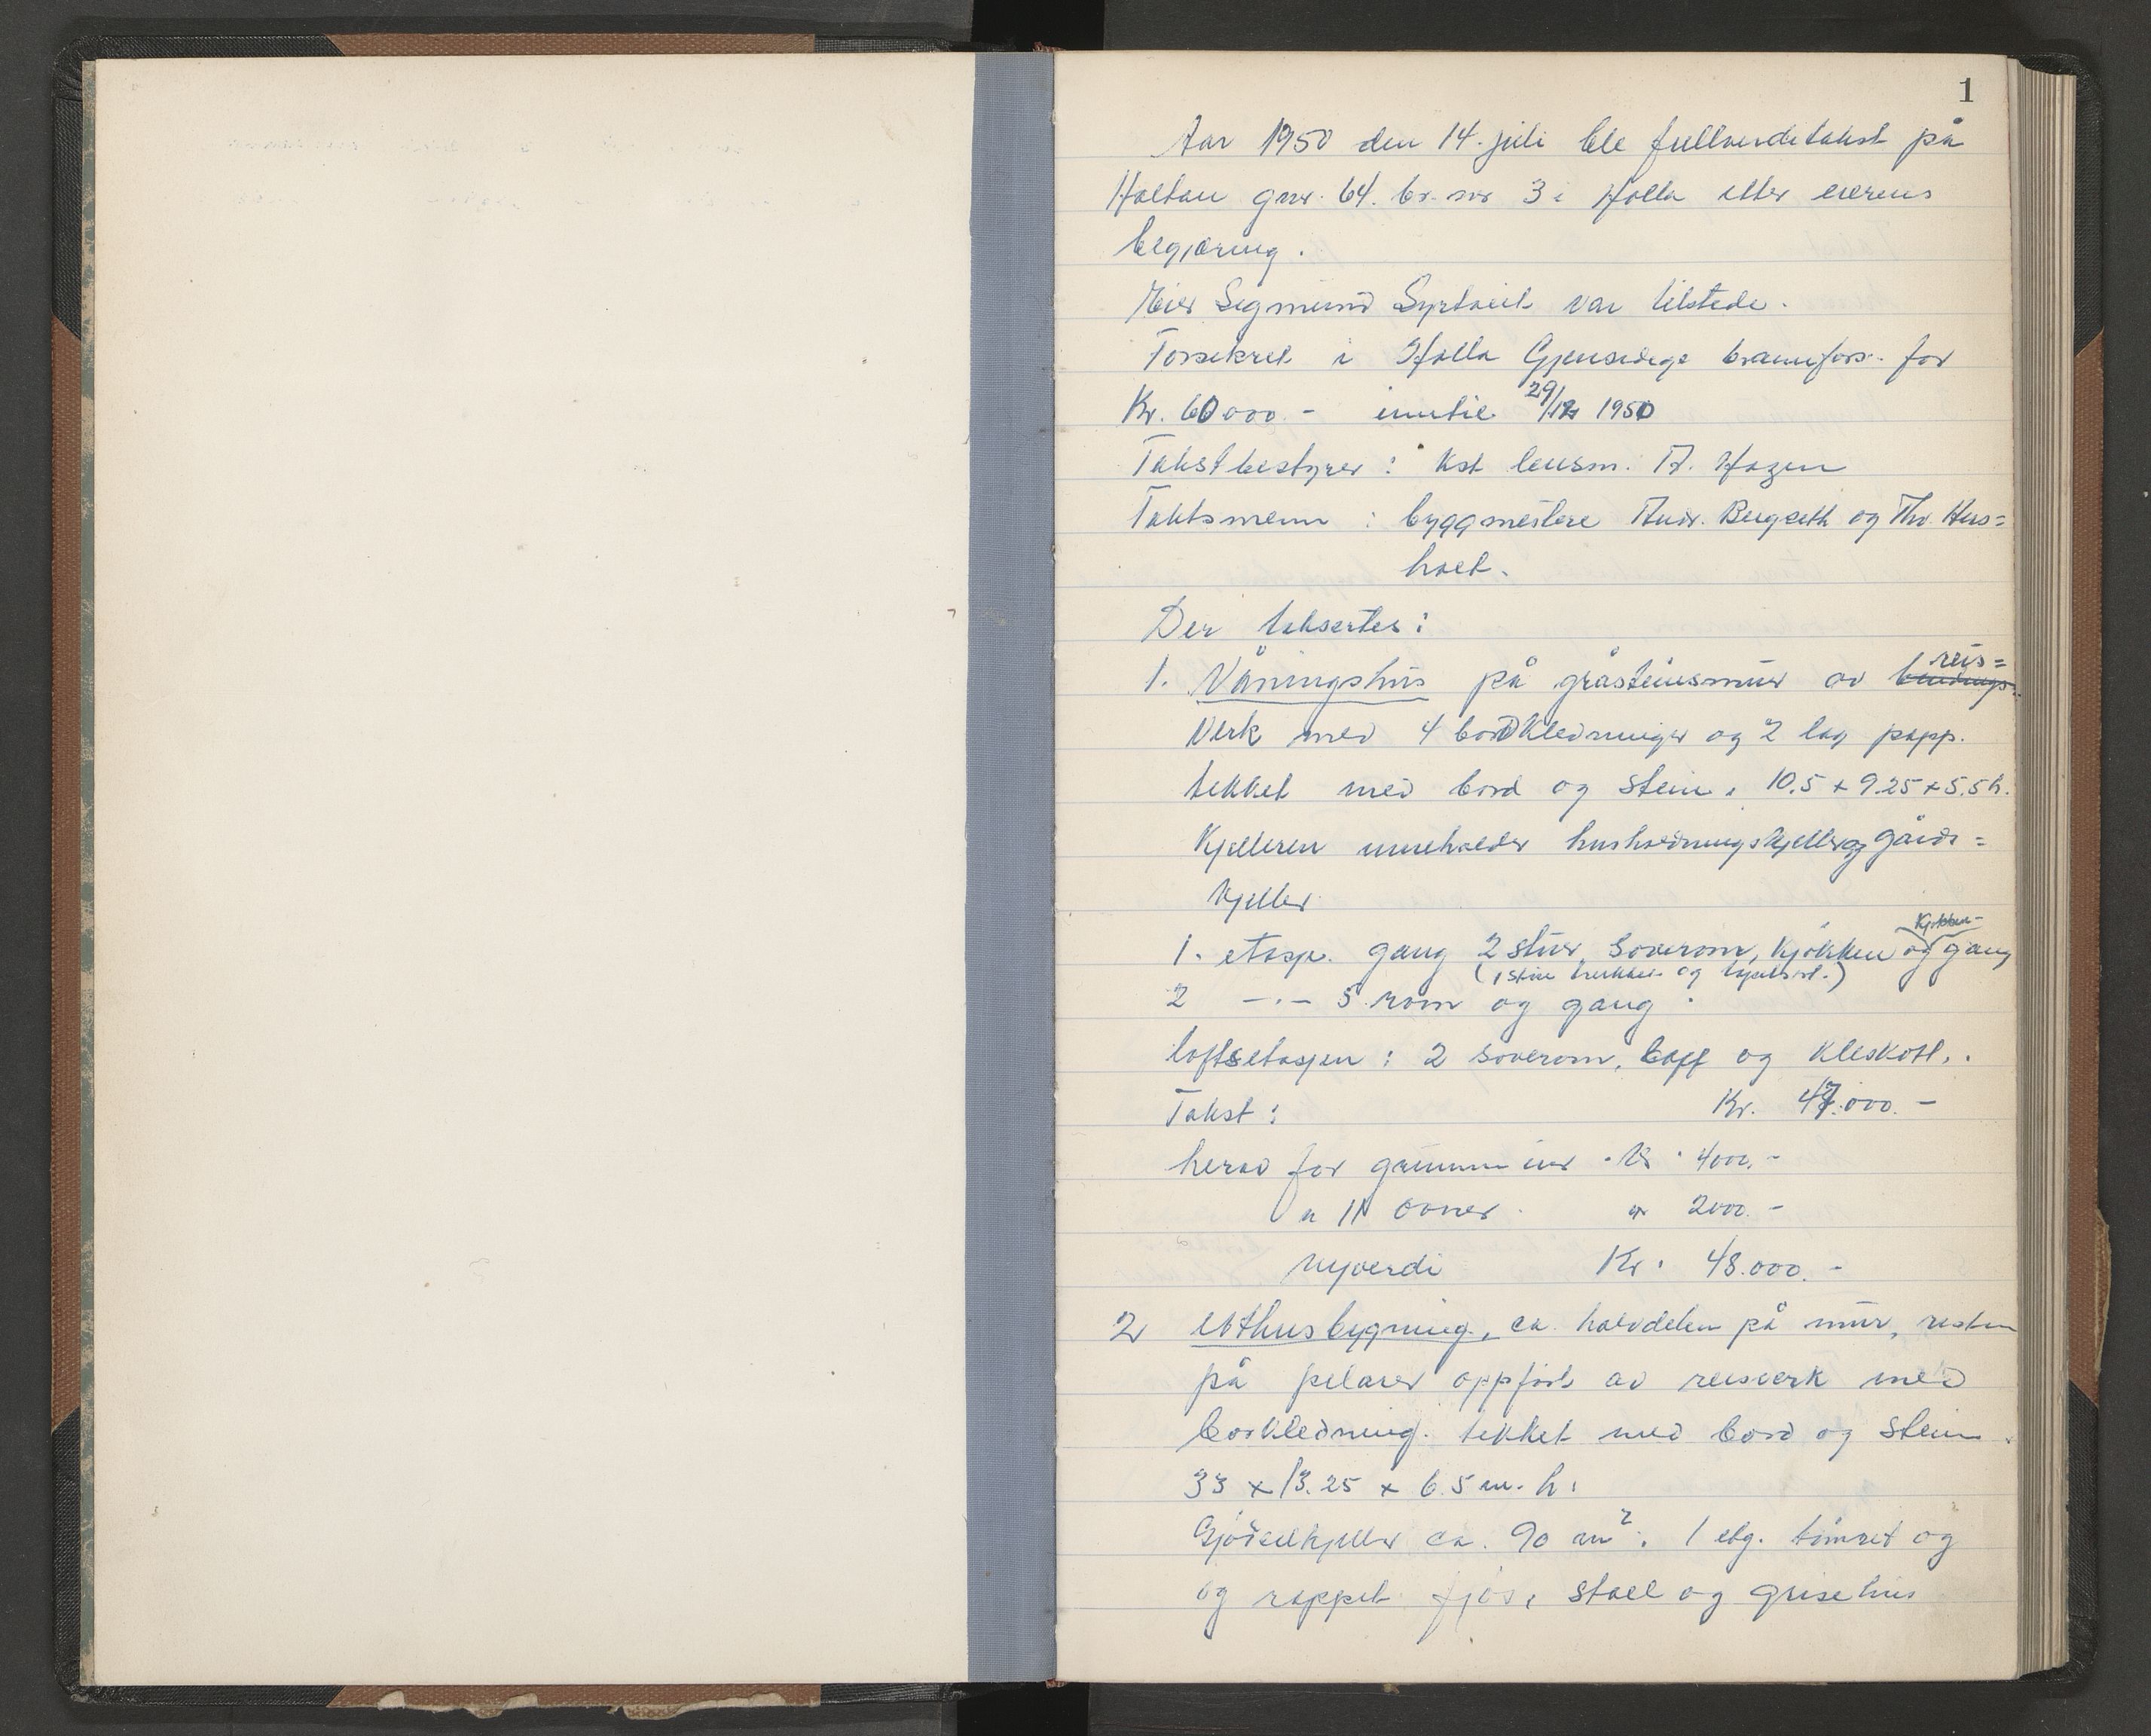 1
Aar 1950 den 14. juli ble fullverditakst på
Haltau gnr. 64. br. nr 3 i Holla etter eierens
begjæring.
Eier Sigmund Syrtveit var tilstede.
Forsikret i Holla Gjensidige brannfors. for
Kr. 60000.- inntil 29/12 1950
Takstbestyrer: Kst lensm. A. Hagen
Takstmenn: byggmestere Andr. Bergseth og Thv. Hus=
holt.
Der taksertes:
1. Våningshus på gråsteinsmur av bindings reis=
verk med 4 bordkledninger og 2 lag papp.
tekket med bord og stein. 10.5 x 9.25 x 5.5 h.
Kjelleren inneholder husholdningskjeller og gårds=
kjeller
1. etasje. gang 2 stuer, soverom, kjøkken og kjøkken- gang
(1 stue trukket og hjulsvl.)
2 -.- 5 rom og gang.
loftsetasjen: 2 soverom, loft og kleskott.
Takst: Kr. 47.000.-
herav for grunnmur Kr 4000.-
" 11 ovner " 2000.-
nyverdi Kr. 48.000.-
2 Uthusbygning, ca. halvdelen på mur, resten
på pelarer oppført av reisverk med
borkledning. tekket med bord og stein.
33 x 13.25 x 6.5 m. h.
Gjødselkjeller ca. 90 m2. 1 etg. tømret og
og rappet fjøs, stall og grisehus